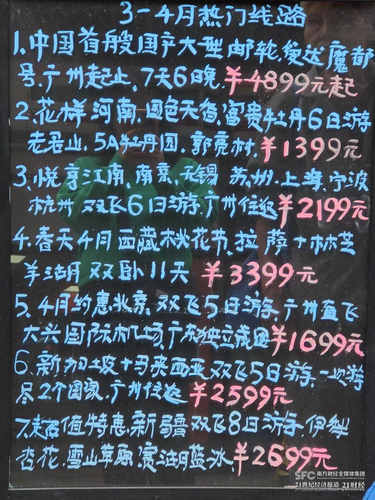 3-4月热门线路
1.中国首艘国产大型邮轮,爱达魔都
号.广州起止,7天6晚.¥4899元起
2.花样河南.国色天香.富贵牡丹6日游
老君山.5A牡丹园.郭亮村.¥1399元
3.悦享江南.南京.无锡 苏州.上海.宁波
杭州 双飞6日游.广州往返¥2199元
4.春天4月西藏桃花节.拉萨+林芝
羊湖 双卧11天 ¥3399元
5.4月约惠北京.双飞5日游.广州直飞
大兴国际机场.广东独立成团¥1699元
6.新加坡+马来西亚双飞5日游.一次游
尽2个国家.广州往返¥2599元
7.超值特惠.新疆双飞8日游 伊犁
杏花.雪山草原.赛湖蓝冰.¥2699元
SFC 南方财经全媒体集团
21世纪经济报道 21财经